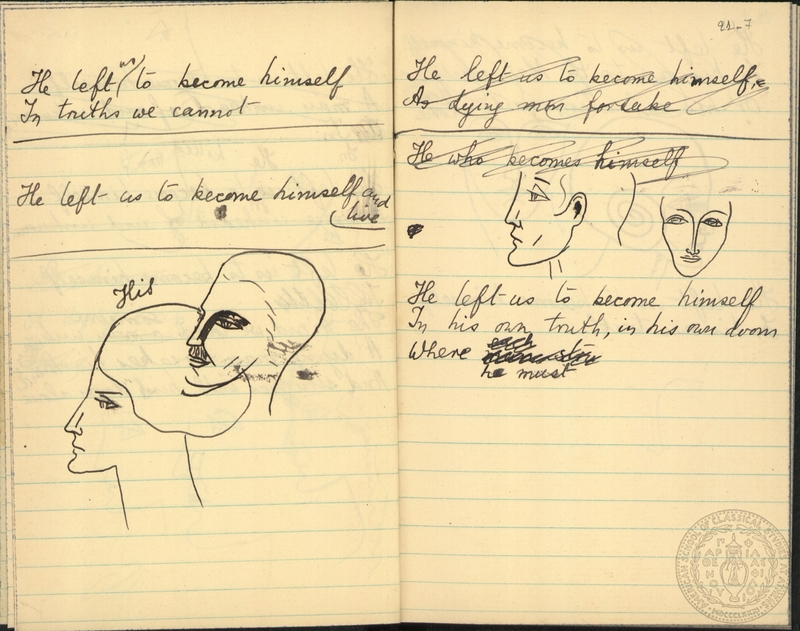 He left us to become himself
In truths we cannot
He left us to become himself and
live
His
21-7
He left us to become himself,
As dying men forsake
He who becomes himself
He left us to become himself
In his own truth, in his own doom
Where each
he must
AMERICAN SCHOOL OF CLASSICAL STUDIES